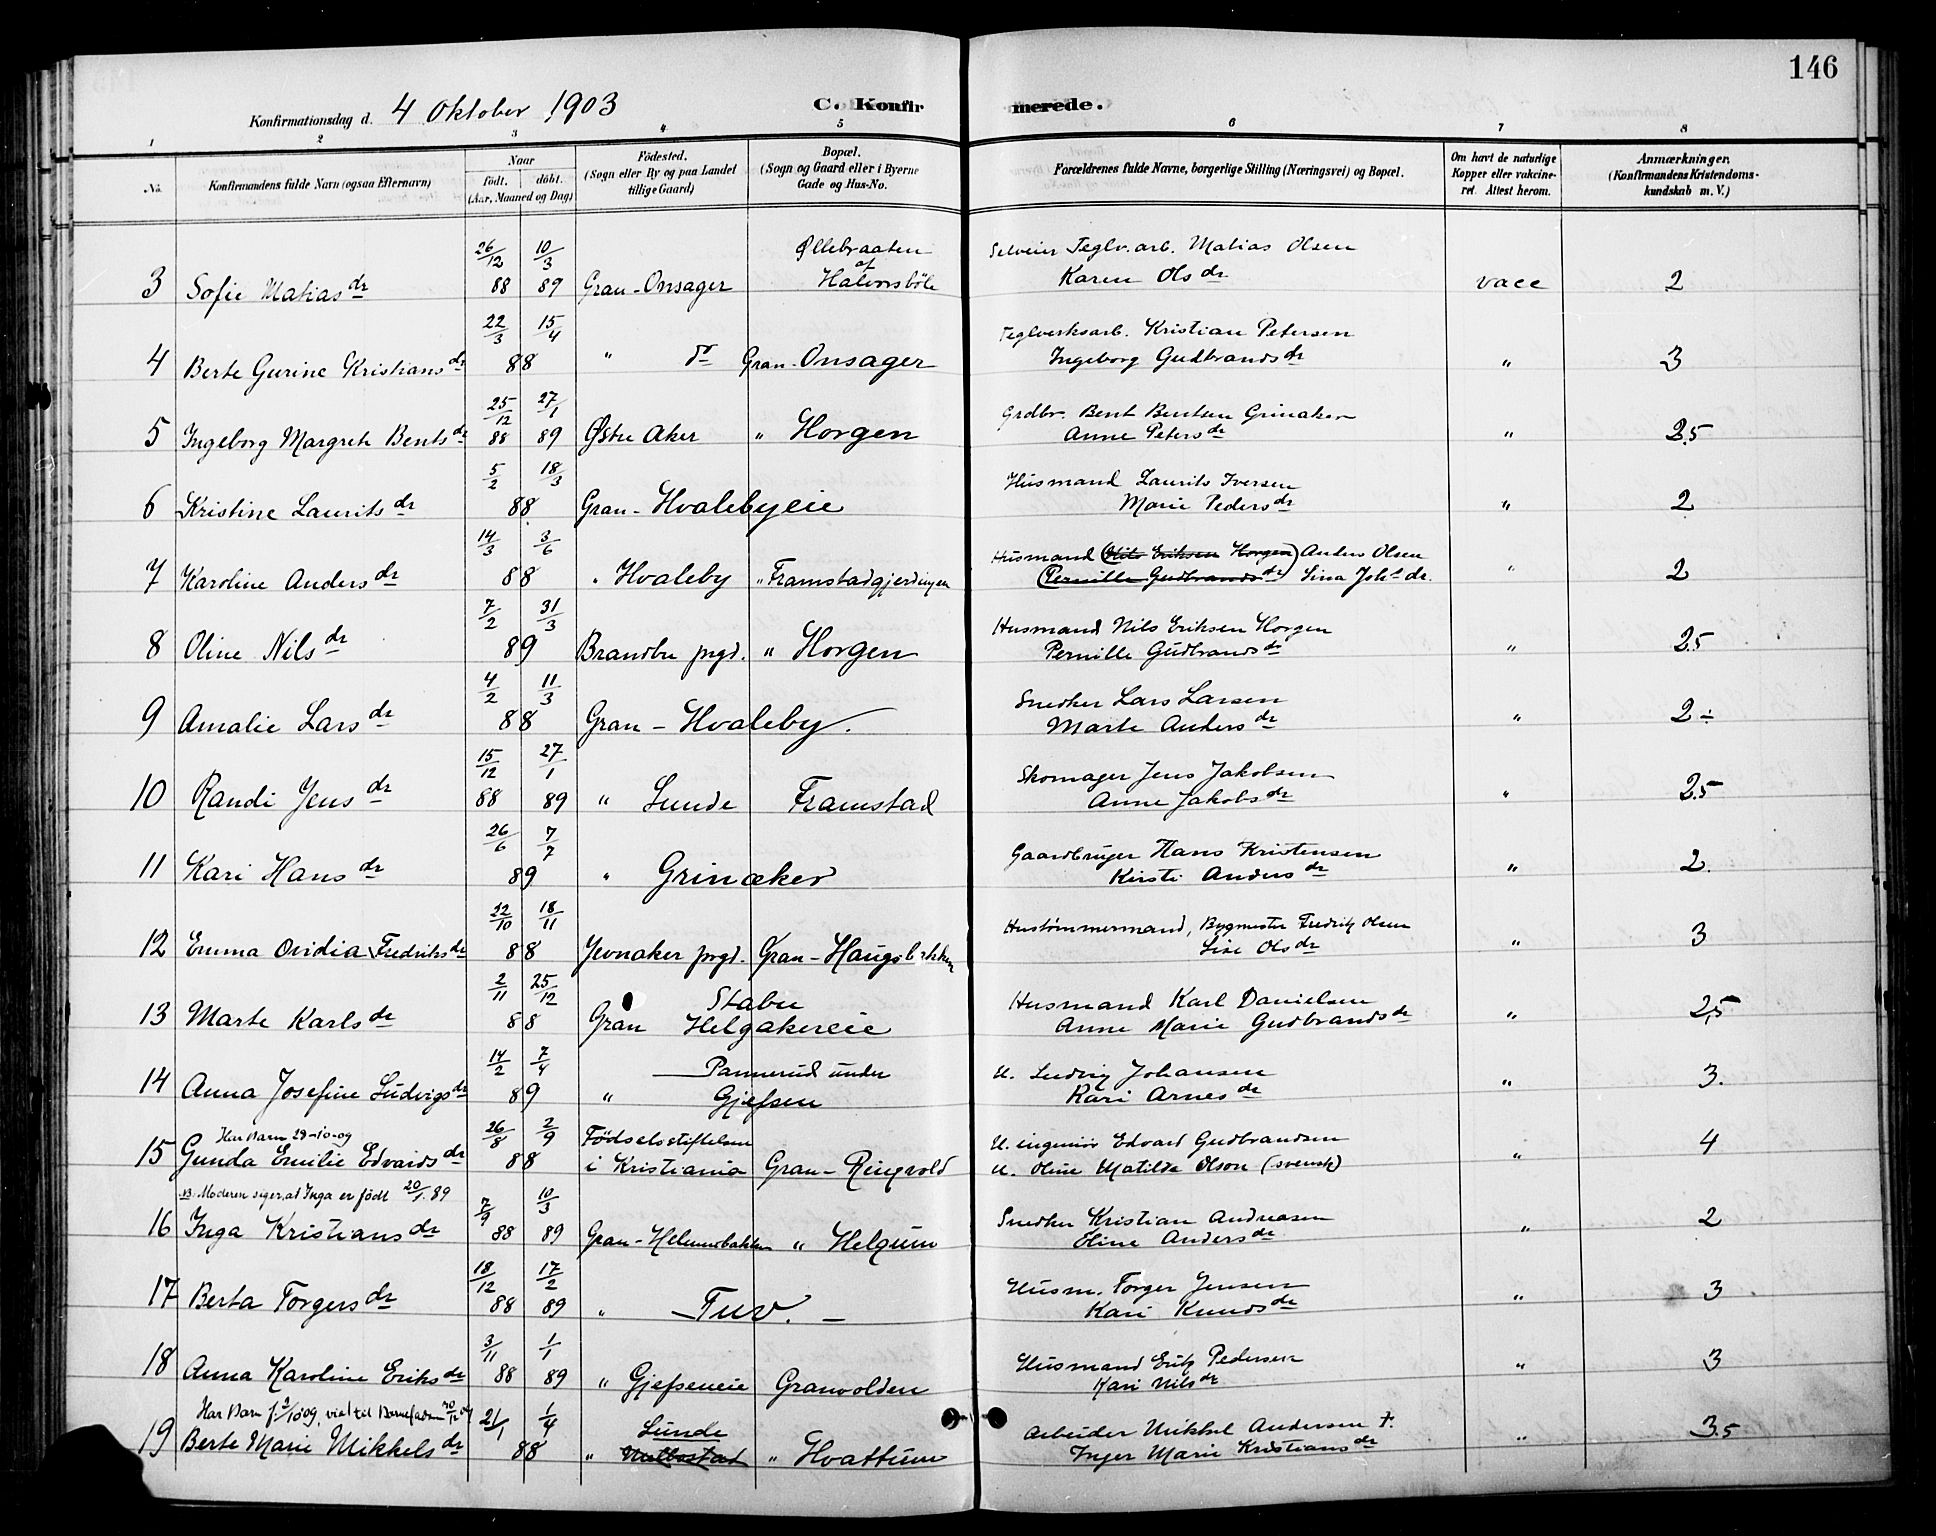 146
Konfirmationsdag d. 4 Oktober 1903
C. Konfirmerede.
1 2 3 4 5 6 7 8
No. Konfirmandens fulde Navn (ogsaa Efternavn) Naar födt. döbt. (Aar, Maaned og Dag) Födested. (Sogn eller By og paa Landet tillige Gaard) Bopæl. (Sogn og Gaard eller i Byerne Gade og Hus-No. Forældrenes fulde Navne, borgerlige Stilling (Næringsvei) og Bopæl. Om havt de naturlige Kopper eller vakcineret. Attest herom. Anmærkninger. (Konfirmandens Kristendomskundskab m. V.)
3 Sofie Matias dr 26/12 88 10/3 89 Gran - Onsager Øllebraaten af Halvorsböle Selveier Teglv. arb. Matias Olsen Karen Ols dr vacc 2
4 Berte Gurine Kristians dr 22/3 15/4 88 " do Gran - Onsager Teglverksarb. Kristian Petersen Ingeborg Gudbrands dr " 3
5 Ingeborg Margrete Bents dr 25/12 88 27/1 89 Østre Aker " Horgen Grdbr. Bent Bentsen Grinaker Anne Peters dr " 2.5
6 Kristine Laurits dr 5/2 18/3 88 Gran - Hvalebyeie Husmand Laurits Iversen Marie Peders dr " 2
7 Karoline Anders dr 14/3 3/6 88 " Hvaleby " Framstadgjerdingen Husmand (Nils Eriksen Horgen) Anders Olsen (Pernille Gudbrands dr) Lina Johs dr. " 2
8 Oline Nils dr 7/2 31/3 89 Brandbu prgd. " Horgen Husmand Nils Eriksen Horgen Pernille Gudbrands dr " 2.5
9 Amalie Lars dr 4/2 11/3 88 Gran - Hvaleby. Snedker Lars Larsen Marte Anders dr " 2 ÷
10 Randi Jens dr 15/12 88 27/1 89 " Lunde Framstad Skomager Jens Jakobsen Anne Jakobs dr " 2.5
11 Kari Hans dr 26/6 7/7 89 " Grinaker Gaardbruger Hans Kristensen Kirsti Anders dr " 2.
12 Emma Ovidia Fredriks dr 22/10 18/11 88 Jevnaker prgd. Gran - Haugsbakken Hustømmermand, Bygmester Fredrik Olsen Lise Ols dr " 3
13 Marte Karls dr 2/11 25/12 88 Gran Stabu Helgakereie Husmand Karl Danielsen Anne Marie Gudbrands dr " 2,5
14 Anna Josefine Ludvigs dr 14/2 7/4 89 " Pannerud under Gjefsen U. Ludvig Johansen Kari Arnes dr " 3.
Har Barn 29-10-09
15 Gunda Emilie Edvards dr 26/8 2/9 88 Födselsstiftelsen i Kristiania Gran - Ringvold U. ingeniør Edvard Gudbrandsen U. Oline Matilda Olson (svensk) " 4
NB. Moderen siger, at Inga er født 20/1. 89
16 Inga Kristians dr 7/9 88 10/3 89 Gran - Helumsbakken " Helgum Snedker Kristian Andreasen Eline Anders dr " 2
17 Berta Torgers dr 18/12 88 17/2 89 " Tuv. Husm. Torger Jensen Kari Knuds dr " 3
18 Anna Karoline Eriks dr 3/11 88 1/1 89 " Gjefseneie Granvolden Husmand Erik Pedersen Kari Nils dr " 3
Har Barn f. 2/10 09, viet til Barnefaderen 30/12 09
19 Berte Marie Mikkels dr 21/1 1/4 88 " Lunde " Hvattum Arbeider Mikkel Andersen † Inger Marie Kristians dr " 3.5